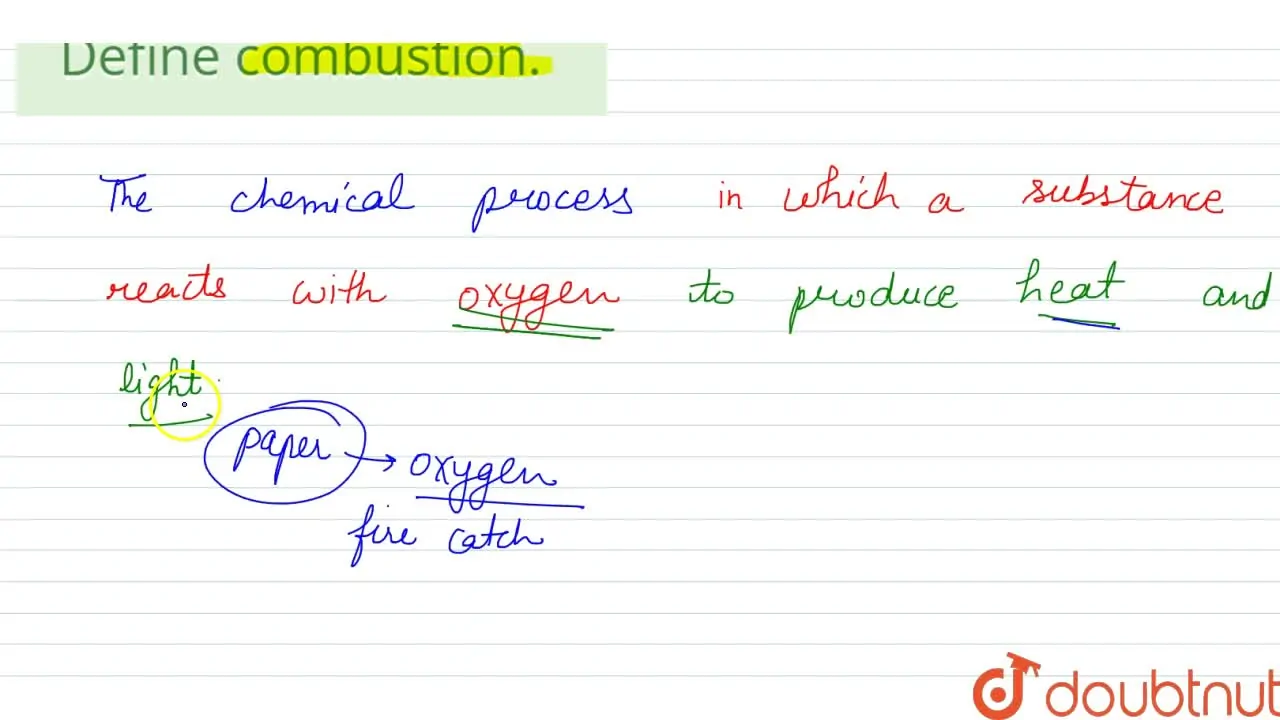 Define combustion.
The chemical process in which a substance
reacts with oxygen to produce heat and
light
paper → oxygen
fire catch
doubtnut